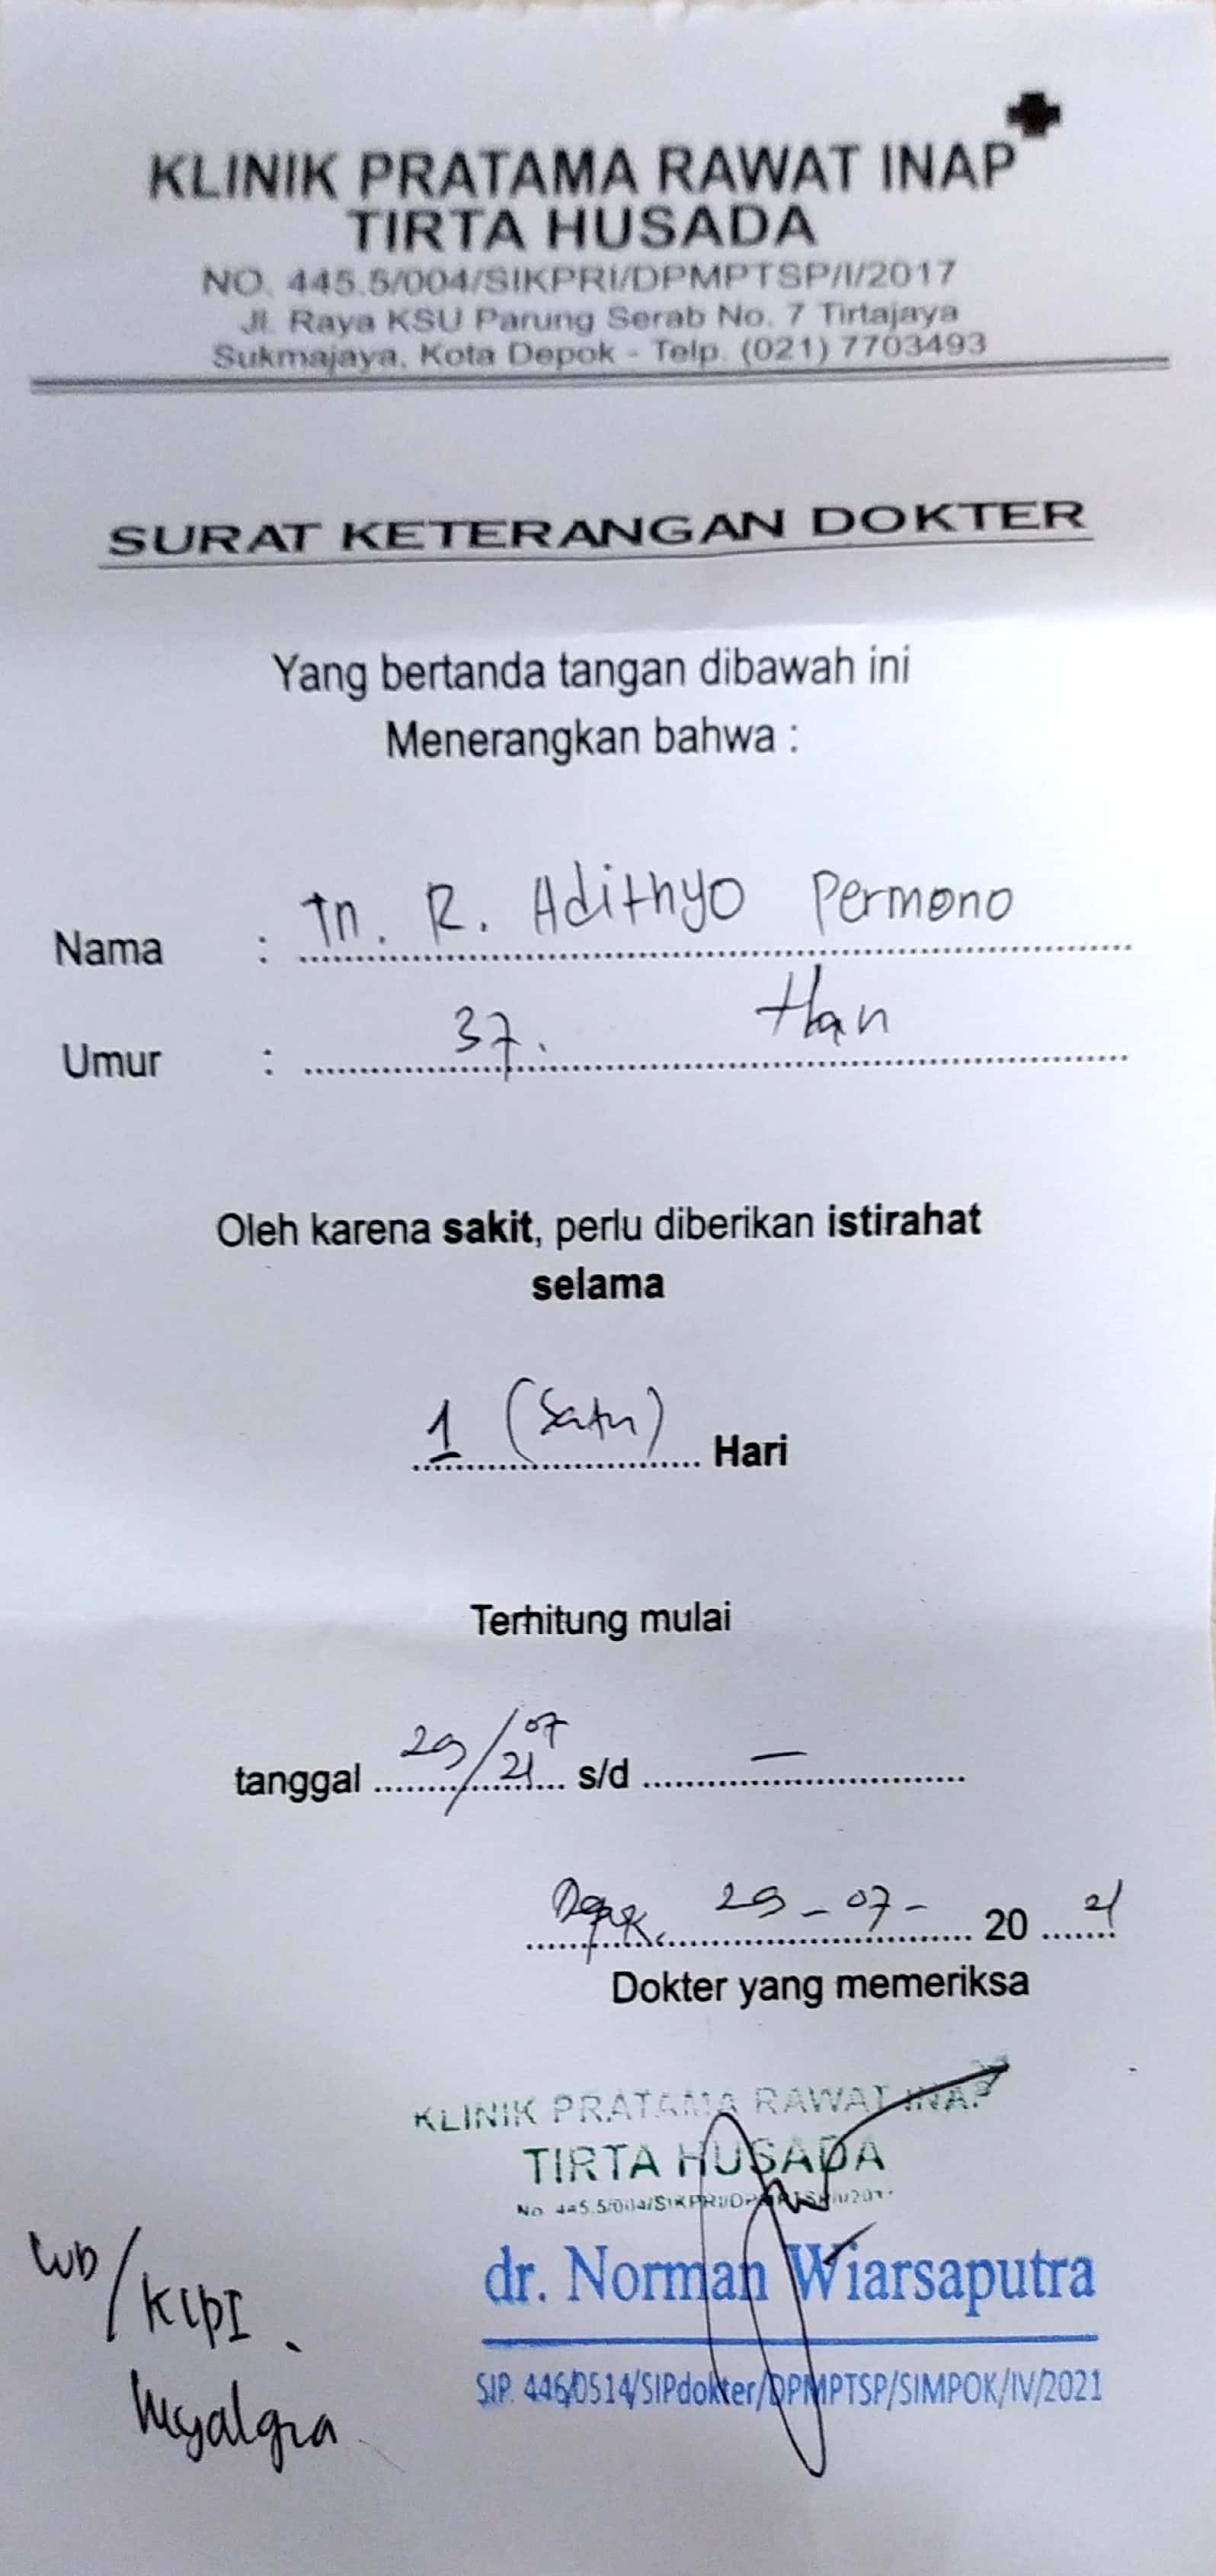 KLINIK PRATAMA RAWAT INAP
TIRTA HUSADA
NO. 445.5/004/SIKPRI/DPMPTSP/I/2017
Jl. Raya KSU Parung Serab No. 7 Tirtajaya
Sukmajaya, Kota Depok - Telp. (021) 7703493
SURAT KETERANGAN DOKTER
Yang bertanda tangan dibawah ini
Menerangkan bahwa :
Nama : Tn. R. Adithyo Permono
Umur : 37.
Oleh karena sakit, perlu diberikan istirahat
selama
1 (Satu) Hari
Terhitung mulai
tanggal 29/07 21 s/d —
Depok. 29-07- 20 21
Dokter yang memeriksa
KLINIK PRATAMA RAWAT INAP
TIRTA HUSADA
No. 445.5/004/SIKPRI/DPMPTSP/I/2017
dr. Norman Wiarsaputra
SIP. 446/0514/SIPdokter/DPMPTSP/SIMPOK/IV/2021
WD/
KIPI.
Myalgia